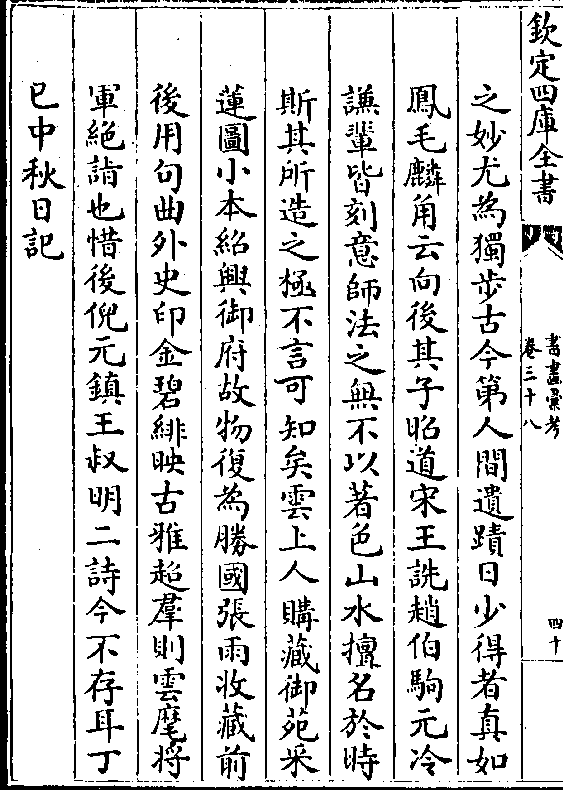 欽定四庫全書
書畫彙考
卷三十八
四十
之妙尤為獨步古今第人間遺蹟日少得者真如
鳳毛麟角云向後其子昭道宋王詵趙伯駒元冷
謙輩皆刻意師法之無不以著色山水擅名於時
斯其所造之極不言可知矣雲上人購藏御苑采
蓮圖小本紹興御府故物復為勝國張雨收藏前
後用句曲外史印金碧緋映古雅超羣則雲麾將
軍絶詣也惜後倪元鎮王叔明二詩今不存耳丁
巳中秋日記